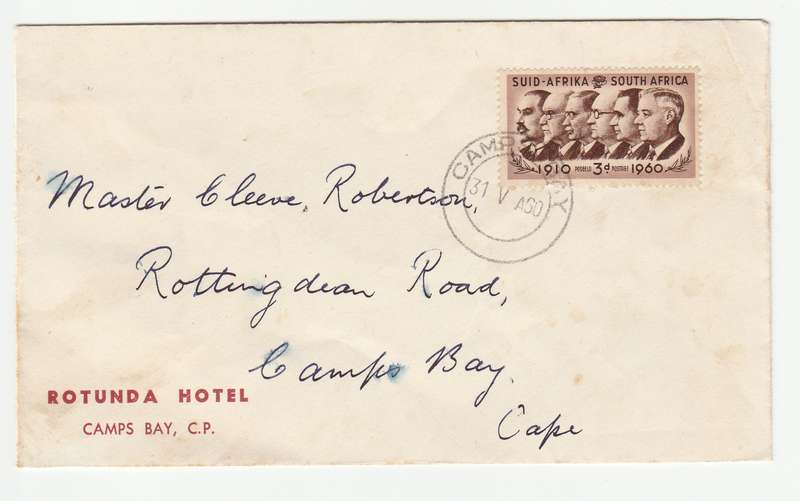 SUID-AFRIKA SOUTH AFRICA
1910 POSSEËL 3d POSTAGE 1960
CAMPS BAY
31 V A60
Master Cleeve Robertson,
Rottingdean Road,
Camps Bay.
Cape
ROTUNDA HOTEL
CAMPS BAY, C.P.